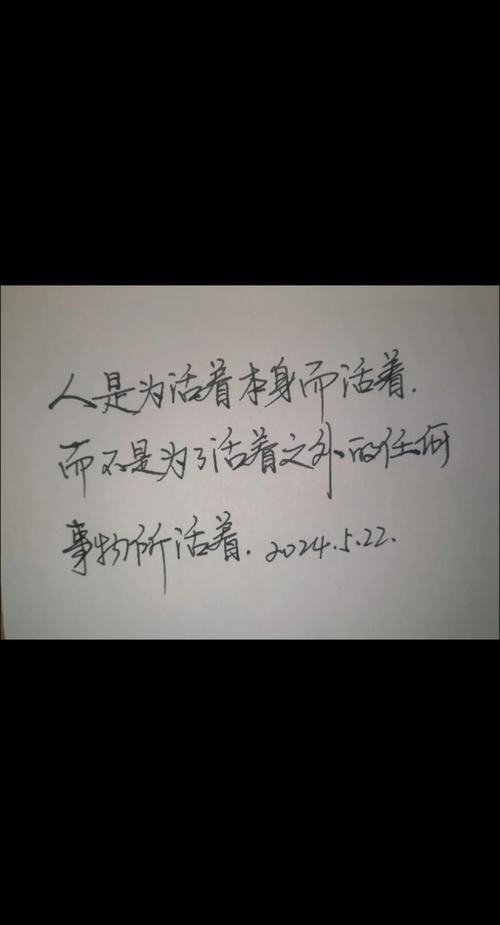 人是为活着本身而活着.
而不是为了活着之外的任何
事物所活着. 2024.5.22.